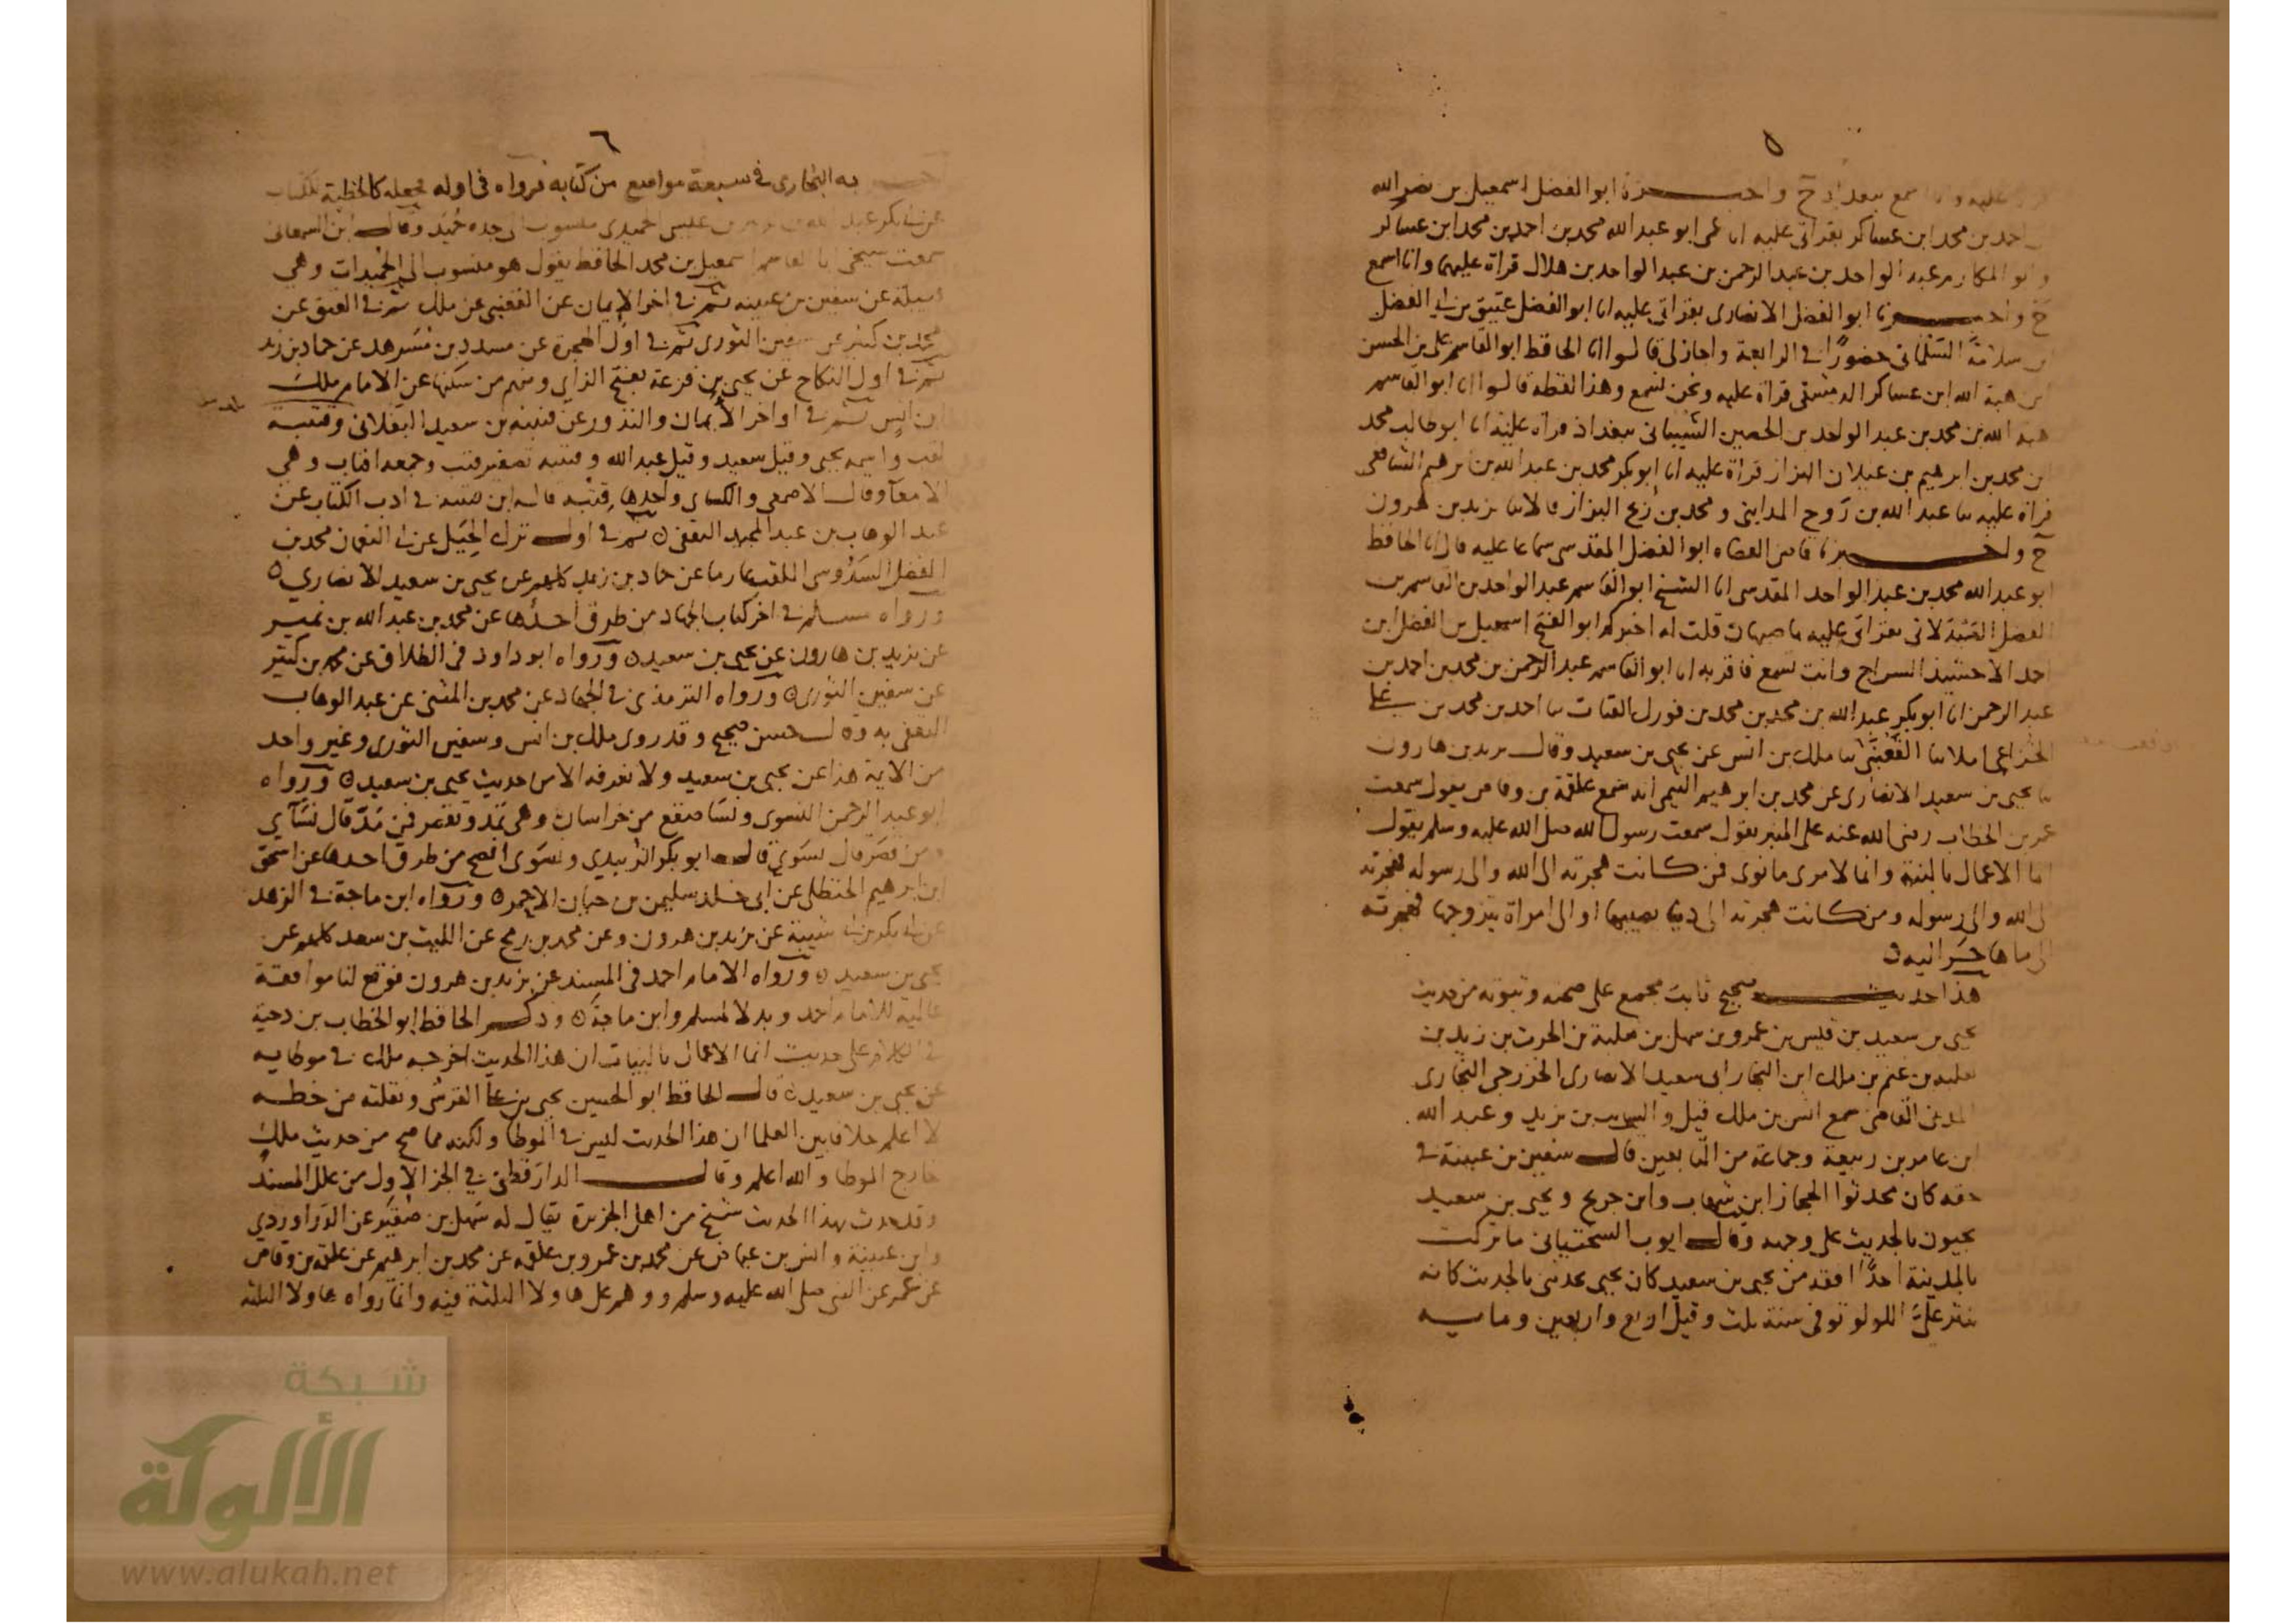 ٥
عليه وانا اسمع ببغداد ح واخبرنا ابو الفضل اسمعيل بن نصر الله
احمد بن محمد ابن عساكر بقراتى عليه انا عمى ابو عبد الله محمد بن احمد بن محمد ابن عساكر
وابو المكارم عبد الواحد بن عبد الرحمن بن عبد الواحد بن هلال قراة عليهما وانا اسمع
ح واخبرنا ابو الفضل الانصارى بقراتى عليه انا ابو الفضل عتيق بن ابى الفضل
بن سلامة السلمانى حضورًا فى الرابعة واجاز لى قالوا انا الحافظ ابو القاسم على بن الحسن
ابن هبة الله ابن عساكر الدمشقى قراة عليه ونحن نسمع وهذا لفظه قالوا انا ابو القاسم
هبة الله بن محمد بن عبد الواحد بن الحصين الشيبانى ببغداد قراة عليه انا ابو طالب محمد
ابن محمد بن ابرهيم بن غيلان البزاز قراة عليه انا ابو بكر محمد بن عبد الله بن ابرهيم الشافعى
قراة عليه نا عبد الله بن روح المداينى ومحمد بن رمح البزاز قالا نا يزيد بن هرون
ح واخبرنا قاضى القضاه ابو الفضل المقدسى سماعا عليه قال انا الحافظ
ابو عبد الله محمد بن عبد الواحد المقدسى انا الشيخ ابو القاسم عبد الواحد بن القاسم بن
الفضل الصيدلانى بقراتى عليه باصبهان قلت له اخبركم ابو الفتح اسمعيل بن الفضل ابن
احمد الاخشيد السراج وانت تسمع فاقر به انا ابو القاسم عبد الرحمن بن محمد بن احمد بن
عبد الرحمن انا ابو بكر عبد الله بن محمد بن محمد بن فورك القباب نا احمد بن محمد بن على
الخزاعى املا نا القعنبى نا ملك بن انس عن يحيى بن سعيد وقال يزيد بن هارون
نا يحيى بن سعيد الانصارى عن محمد بن ابرهيم التيمى انه سمع علقمة بن وقاص يقول سمعت
عمر بن الخطاب رضى الله عنه على المنبر يقول سمعت رسول الله صلى الله عليه وسلم يقول
انما الاعمال بالنية وانما لامرى ما نوى فمن كانت هجرته الى الله والى رسوله فهجرته
الى الله والى رسوله ومن كانت هجرته الى دنيا يصيبها او الى امراة يتزوجها فهجرته
الى ما هاجر اليه ٥
هذا حديث صحيح ثابت مجمع على صحته وثبوته من حديث
يحيى بن سعيد بن قيس بن عمرو بن سهل بن ثعلبة بن الحرث بن زيد بن
ثعلبه بن غنم بن ملك ابن النجار ابى سعيد الانصارى الخزرجى النجارى
المدنى القاضى سمع انس بن ملك قيل والسايب بن يزيد وعبد الله
ابن عامر بن ربيعة وجماعة من التابعين قال سفين بن عيينة فى
حقه كان محدثوا الحجاز ابن شهاب وابن جريج ويحيى بن سعيد
يجيون بالحديث على وجهه وقال ايوب السختيانى ما تركت
بالمدينة احدًا افقه من يحيى بن سعيد كان يحيى يحدثنى بالحديث كانه
ينثر علىّ اللولو توفى سنة ثلث وقيل اربع واربعين وماية
٦
به البخارى فى سبعة مواضع من كتابه فرواه فى اوله فجعله كالخطبة للكتاب
عن ابى بكر عبد الله بن عيسى الحميدى منسوب الى جده حُمَيد وقال ابن السمعانى
سمعت شيخى ابا القاسم اسمعيل بن محمد الحافظ يقول هو منسوب الى الحميدات وهى
قبيلة عن سفين بن عيينه ثم فى اخر الايمان عن القعنبى عن ملك ثم فى العتق عن
محمد بن كثير عن سفين الثورى ثم فى اول الهجرة عن مسدد بن مُسَرهد عن حماد بن زيد
ثم فى اول النكاح عن يحيى بن قزعة بفتح الزاى ومنهم من سكنها عن الامام ملك
ابن انس ثم فى اواخر الأيمان والنذور عن قتيبة بن سعيد البغلانى وقتيبة
لقب واسمه يحيى وقيل سعيد وقيل عبد الله وقتيبة تصغير قتب وجمعه اقتاب وهى
الامعآ وقال الاصمعى والكساى واحدها قتبه قاله ابن قتيبة فى ادب الكتاب عن
عبد الوهاب بن عبد المجيد الثقفى ٥ ثم فى اول ترك الحيل عن ابى النعمان محمد بن
الفضل السدوسى الملقب بعارم عن حماد بن زيد كلهم عن يحيى بن سعيد الانصارى ٥
ورواه مسلم فى اخر كتاب الجهاد من طرق احدها عن محمد بن عبد الله بن نمير
عن يزيد بن هارون عن يحيى بن سعيد ٥ ورواه ابو داود فى الطلاق عن محمد بن كثير
عن سفين الثورى ٥ ورواه الترمذى فى الجهاد عن محمد بن المثنى عن عبد الوهاب
الثقفى به وقال حسن صحيح وقد روى ملك بن انس وسفين الثورى وغير واحد
من الايمة هذا عن يحيى بن سعيد ولا نعرفه الا من حديث يحيى بن سعيد ٥ ورواه
ابو عبد الرحمن النسوى ونسا صقع من خراسان وهى تمد وتقصر فمن مَدّ قال نسآى
ومن قصر قال نسوى قال ابو بكر الزبيدى ونسوى افصح من طرق احدها عن اسحق
ابن ابرهيم الحنظلى عن ابى خلد سليمن بن حيان الاحمر ٥ ورواه ابن ماجة فى الزهد
عن ابى بكر بن ابى شيبة عن يزيد بن هرون وعن محمد بن رمح عن الليث بن سعد كلهم عن
يحيى بن سعيد ٥ ورواه الامام احمد فى المسند عن يزيد بن هرون فوقع لنا موافقة
عالية للامام احمد وبدلا لمسلم وابن ماجة ٥ وذكر الحافظ ابو الخطاب بن دحية
فى الكلام على حديث انما الاعمال بالنيات ان هذا الحديث اخرجه ملك فى موطايه
عن يحيى بن سعيد ٥ قال الحافظ ابو الحسين يحيى بن على القرشى ونقلته من خطه
لا اعلم خلافا بين العلما ان هذا الحديث ليس فى الموطا ولكنه مما صح من حديث ملك
خارج الموطا والله اعلم وقال الدارقطنى فى الجز الاول من علل المسند
وقد حدث بهذا الحديث شيخ من اهل الجزيرة يقال له سهل بن صُقَير عن الدراوردى
وابن عيينة وانس بن عياض عن محمد بن عمرو بن علقمه عن محمد بن ابرهيم عن علقمه بن وقاص
عن عمر عن النبى صلى الله عليه وسلم ووهم على هاولا الثلثة فيه وانما رواه هاولا الثلثه
شبكة
الألوكة
www.alukah.net